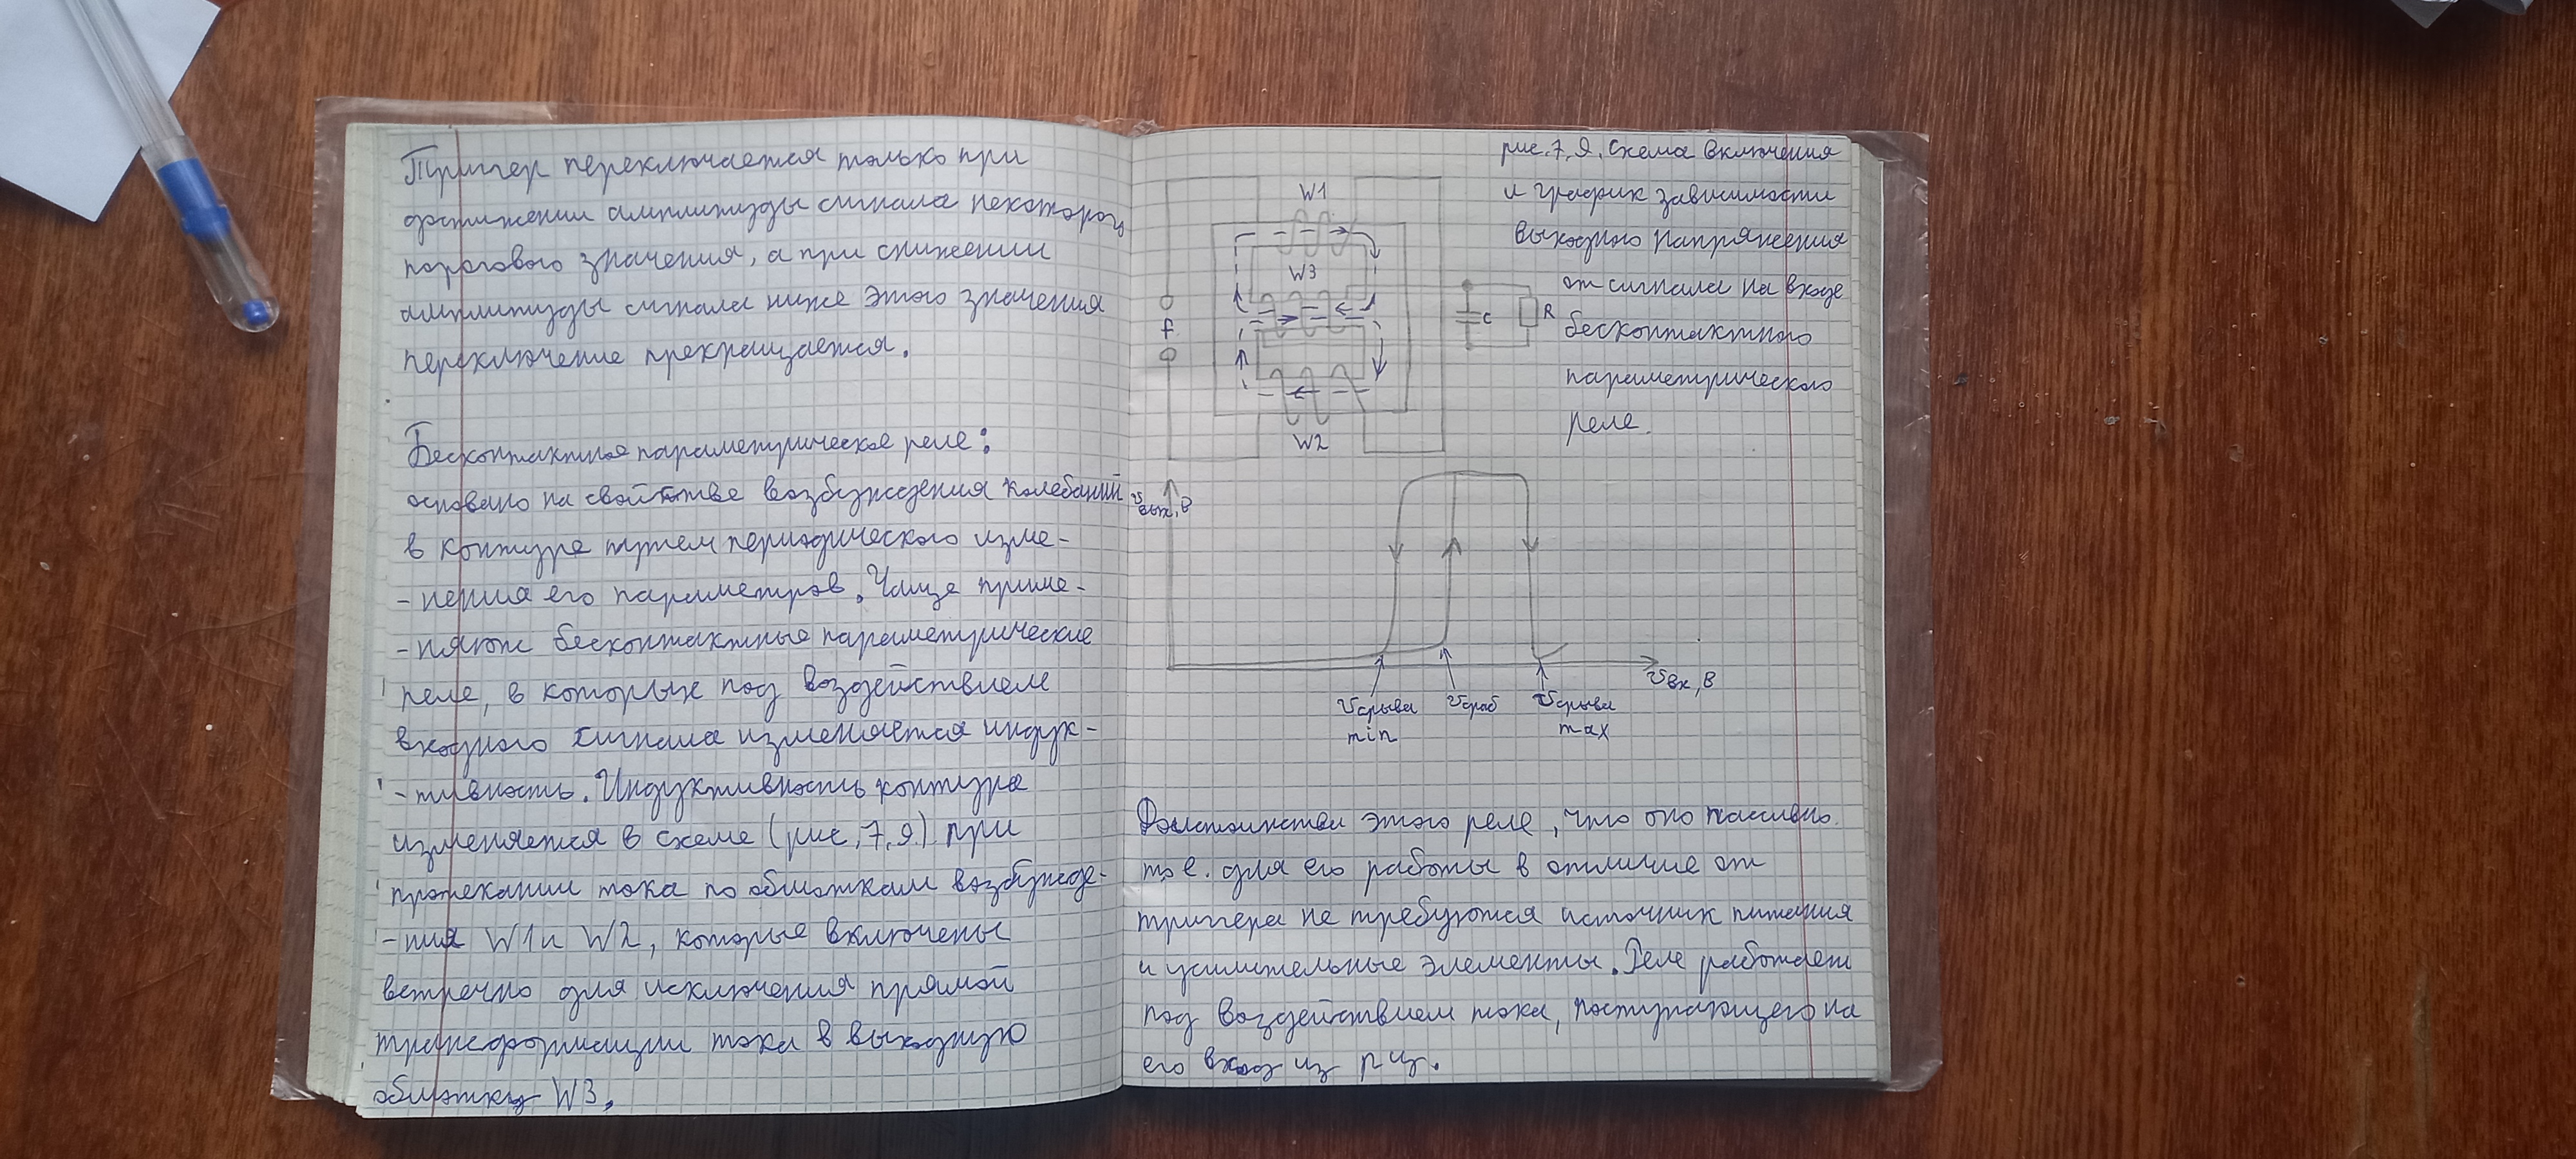 Тригер переключается только при
достижении амплитуды сигнала некоторого
порогового значения, а при снижении
амплитуды сигнала ниже этого значения
переключение прекращается.
Бесконтактное параметрическое реле:
основано на свойстве возбуждения колебаний
в контуре путем периодического изме-
-нения его параметров. Чаще приме-
-няют бесконтактные параметрические
реле, в которых под воздействием
входного сигнала изменяется индук-
-тивность. Индуктивность контура
изменяется в схеме (рис. 7.9.) при
протекании тока по обмоткам возбужде-
-ния W1 и W2, которые включены
встречно для исключения прямой
трансформации тока в выходную
обмотку W3.
рис. 7.9. Схема включения
и график зависимости
выходного напряжения
от сигнала на входе
бесконтактного
параметрического
реле.
W1
W3
f
C
R
W2
Uвых, В
Uвх, В
Uсрыва
min
Uсраб
Uсрыва
max
Достоинства этого реле, что оно пассивно.
т.е. для его работы в отличие от
триггера не требуются источник питания
и усилительные элементы. Реле работает
под воздействием тока, поступающего на
его вход из рц.